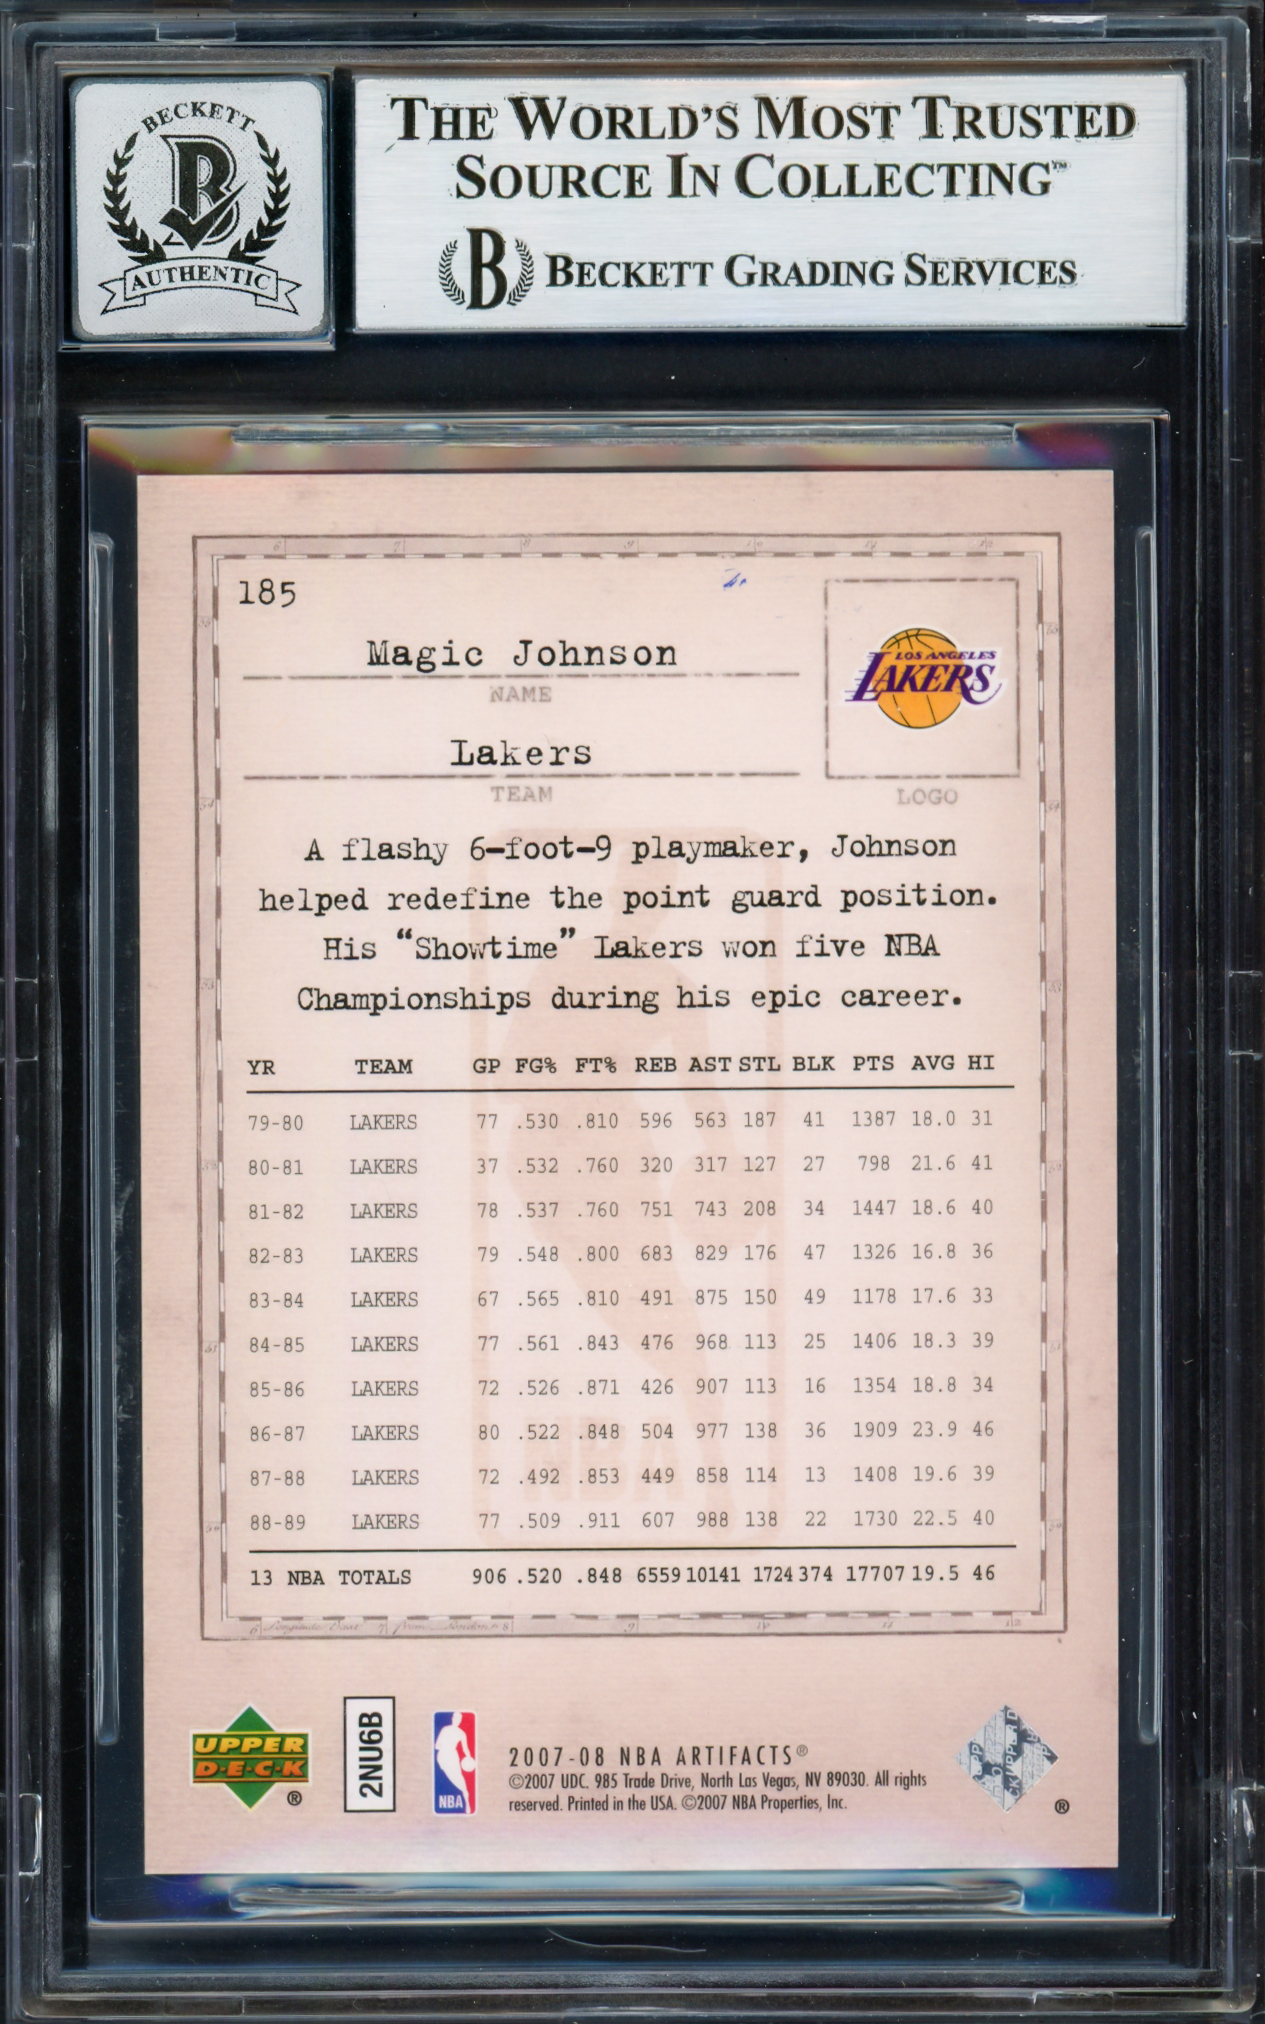 BECKETT
B
AUTHENTIC
THE WORLD'S MOST TRUSTED
SOURCE IN COLLECTING™
B BECKETT GRADING SERVICES
185
Magic Johnson
NAME
LOS ANGELES
LAKERS
Lakers
TEAM
LOGO
A flashy 6-foot-9 playmaker, Johnson
helped redefine the point guard position.
His “Showtime” Lakers won five NBA
Championships during his epic career.
YR TEAM GP FG% FT% REB AST STL BLK PTS AVG HI
79-80 LAKERS 77 .530 .810 596 563 187 41 1387 18.0 31
80-81 LAKERS 37 .532 .760 320 317 127 27 798 21.6 41
81-82 LAKERS 78 .537 .760 751 743 208 34 1447 18.6 40
82-83 LAKERS 79 .548 .800 683 829 176 47 1326 16.8 36
83-84 LAKERS 67 .565 .810 491 875 150 49 1178 17.6 33
84-85 LAKERS 77 .561 .843 476 968 113 25 1406 18.3 39
85-86 LAKERS 72 .526 .871 426 907 113 16 1354 18.8 34
86-87 LAKERS 80 .522 .848 504 977 138 36 1909 23.9 46
87-88 LAKERS 72 .492 .853 449 858 114 13 1408 19.6 39
88-89 LAKERS 77 .509 .911 607 988 138 22 1730 22.5 40
13 NBA TOTALS 906 .520 .848 6559 10141 1724 374 17707 19.5 46
UPPER
D·E·C·K
®
2NU6B
NBA
2007-08 NBA ARTIFACTS®
©2007 UDC. 985 Trade Drive, North Las Vegas, NV 89030. All rights
reserved. Printed in the USA. ©2007 NBA Properties, Inc.
®